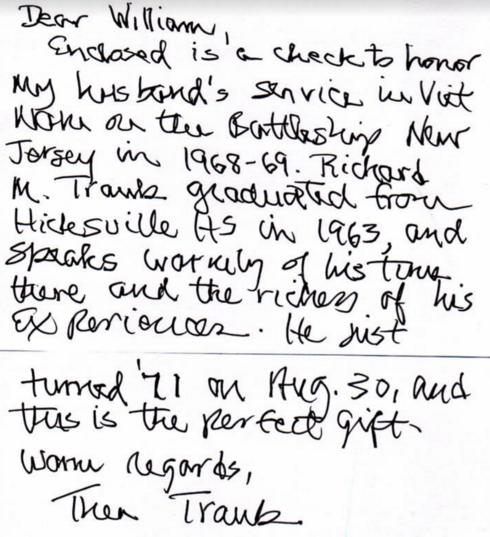 Dear William,
Enclosed is a check to honor
my husband's service in Viet
Nam on the Battleship New
Jersey in 1968-69. Richard
M. Traub graduated from
Hicksville HS in 1963, and
speaks warmly of his time
there and the riches of his
experiences. He just
turned '71 on Aug. 30, and
this is the perfect gift.
Warm regards,
Traub